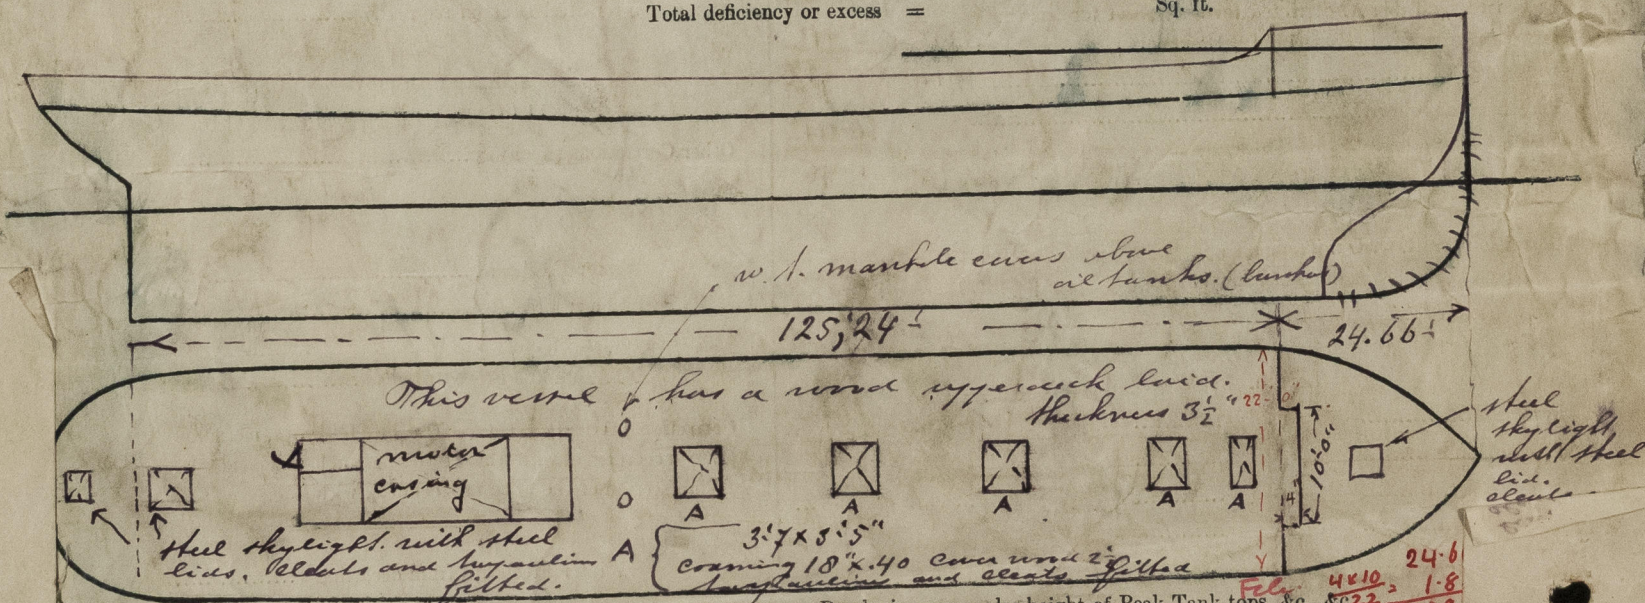 Total deficiency or excess = Sq. ft.
w. t. manhole covers above
oil tanks. (bunker)
125,24'
24.66'
This vessel has a wood upperdeck laid.
thickness 3½"
22'
motor
casing
10'0"
4'
steel
skylight
with steel
lid.
cleats
A A A A A
steel skylight with steel
lids, cleats and tarpaulins
fitted.
A { 3'.7 x 3'.5"
coaming 18" x .40 cover wood 2½"
tarpaulins and cleats fitted
4x10
22
24.6
1.8
height of Peak Tank tops, &c.